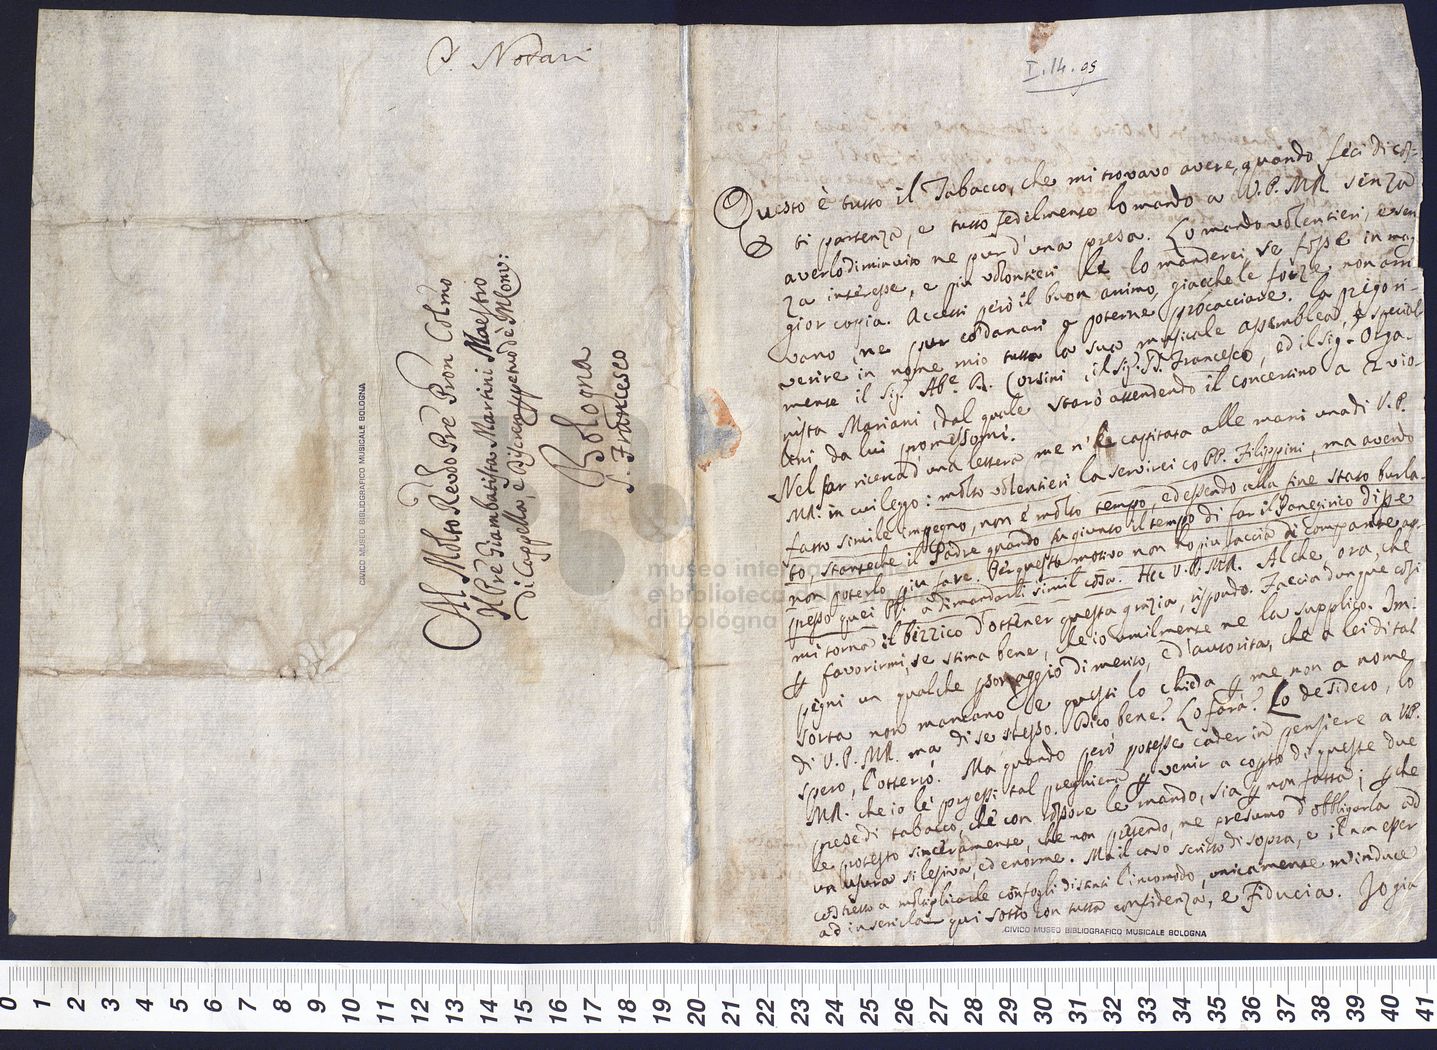 P. Nodari
Al Molto Revdo Pre Pron Colmo
Il Pre Giambatista Martini Maestro
di Cappella, e Discreto perpetuo de M Conv:
Bologna
S. Francesco
CIVICO MUSEO BIBLIOGRAFICO MUSICALE BOLOGNA
I.14.95
Questo è tutto il Tabacco, che mi trovavo avere, quando feci di cos-
ti partenza, e tutto fedelmente lo mando a V. P. MR senza
averlo diminuito ne pur d'una presa. Lo mando volentieri, e sen
za interesse, e piu volontieri le lo manderei, se fosse in mag
gior copia. Accetti però il buon animo, giacche le forze non arri
vano ne pur co danari a poterne procacciare. La prego ri-
verire in nome mio tutta la sua musicale assemblea, e special
mente il Sig. Abe Corsini, il Sig. D. Francesco, ed il Sig. Orga-
nista Mariani, dal quale starò attendendo il concertino a 2 vio-
lini da lui promessomi.
Nel far ricerca d'una lettera me n'è capitata alle mani una di V. P.
MR: in cui leggo: molto volentieri la servirei co PP. Filippini, ma avendo
fatto simile impegno, non è molto tempo, ed essendo alla fine stato burla-
to, stanteche il Padre quando fu giunto il tempo di far il Panegirico disse
non poterlo piu fare. Per questo motivo non ho piu faccia di comparire ap-
presso quei PP. a dimandarli simil cosa. Hec V. P. MR. Al che ora, che
mi torna il bizzico d'ottener questa grazia, rispondo. Faccia dunque cosi
p favorirmi, se stima bene, che io umilmente ne la supplico. Im-
pegni un qualche personaggio di merito, e d'autorita, che a lei di tal
sorta non mancano e questi lo chieda p me non a nome
di V. P. MR. ma di se stesso. Dico bene? Lo farà? Lo desidero, lo
spero, l'otterrò. Ma quando però potesse cader in pensiere a V. P.
MR. che io le porgessi tal preghiera p venir a costo di queste due
prese di tabacco, che con rossore le mando, sia p non fatta; p che
le protesto sinceramente, che non pretendo, ne presumo d'obbligarla ad
un usura si lesiva, ed enorme. Ma il caso scritto di sopra, e il non esser
costretto a moltiplicarle con fogli distinti l'incomodo, unicamente m'induce
ad inserirla qui sotto con tutta confidenza, e Fiducia. Io gia
CIVICO MUSEO BIBLIOGRAFICO MUSICALE BOLOGNA
museo internazionale
e biblioteca della musica
di bologna
0 1 2 3 4 5 6 7 8 9 10 11 12 13 14 15 16 17 18 19 20 21 22 23 24 25 26 27 28 29 30 31 32 33 34 35 36 37 38 39 40 41